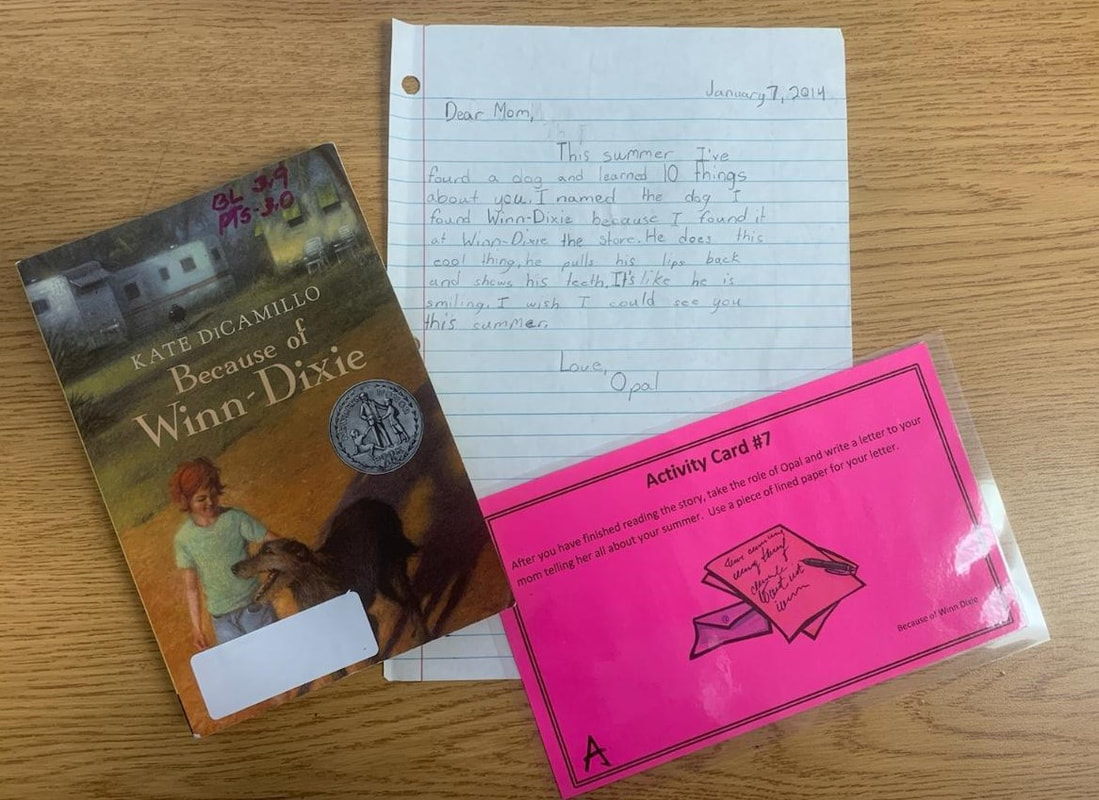 BL 3.9
PTS-3.0
KATE DiCAMILLO
Because of
Winn-Dixie
January 7, 2014
Dear Mom,
This summer I've
found a dog and learned 10 things
about you. I named the dog I
found Winn-Dixie because I found it
at Winn-Dixie the store. He does this
cool thing, he pulls his lips back
and shows his teeth. It's like he is
smiling. I wish I could see you
this summer.
Love,
Opal
Activity Card #7
After you have finished reading the story, take the role of Opal and write a letter to your
mom telling her all about your summer. Use a piece of lined paper for your letter.
Because of Winn Dixie
A